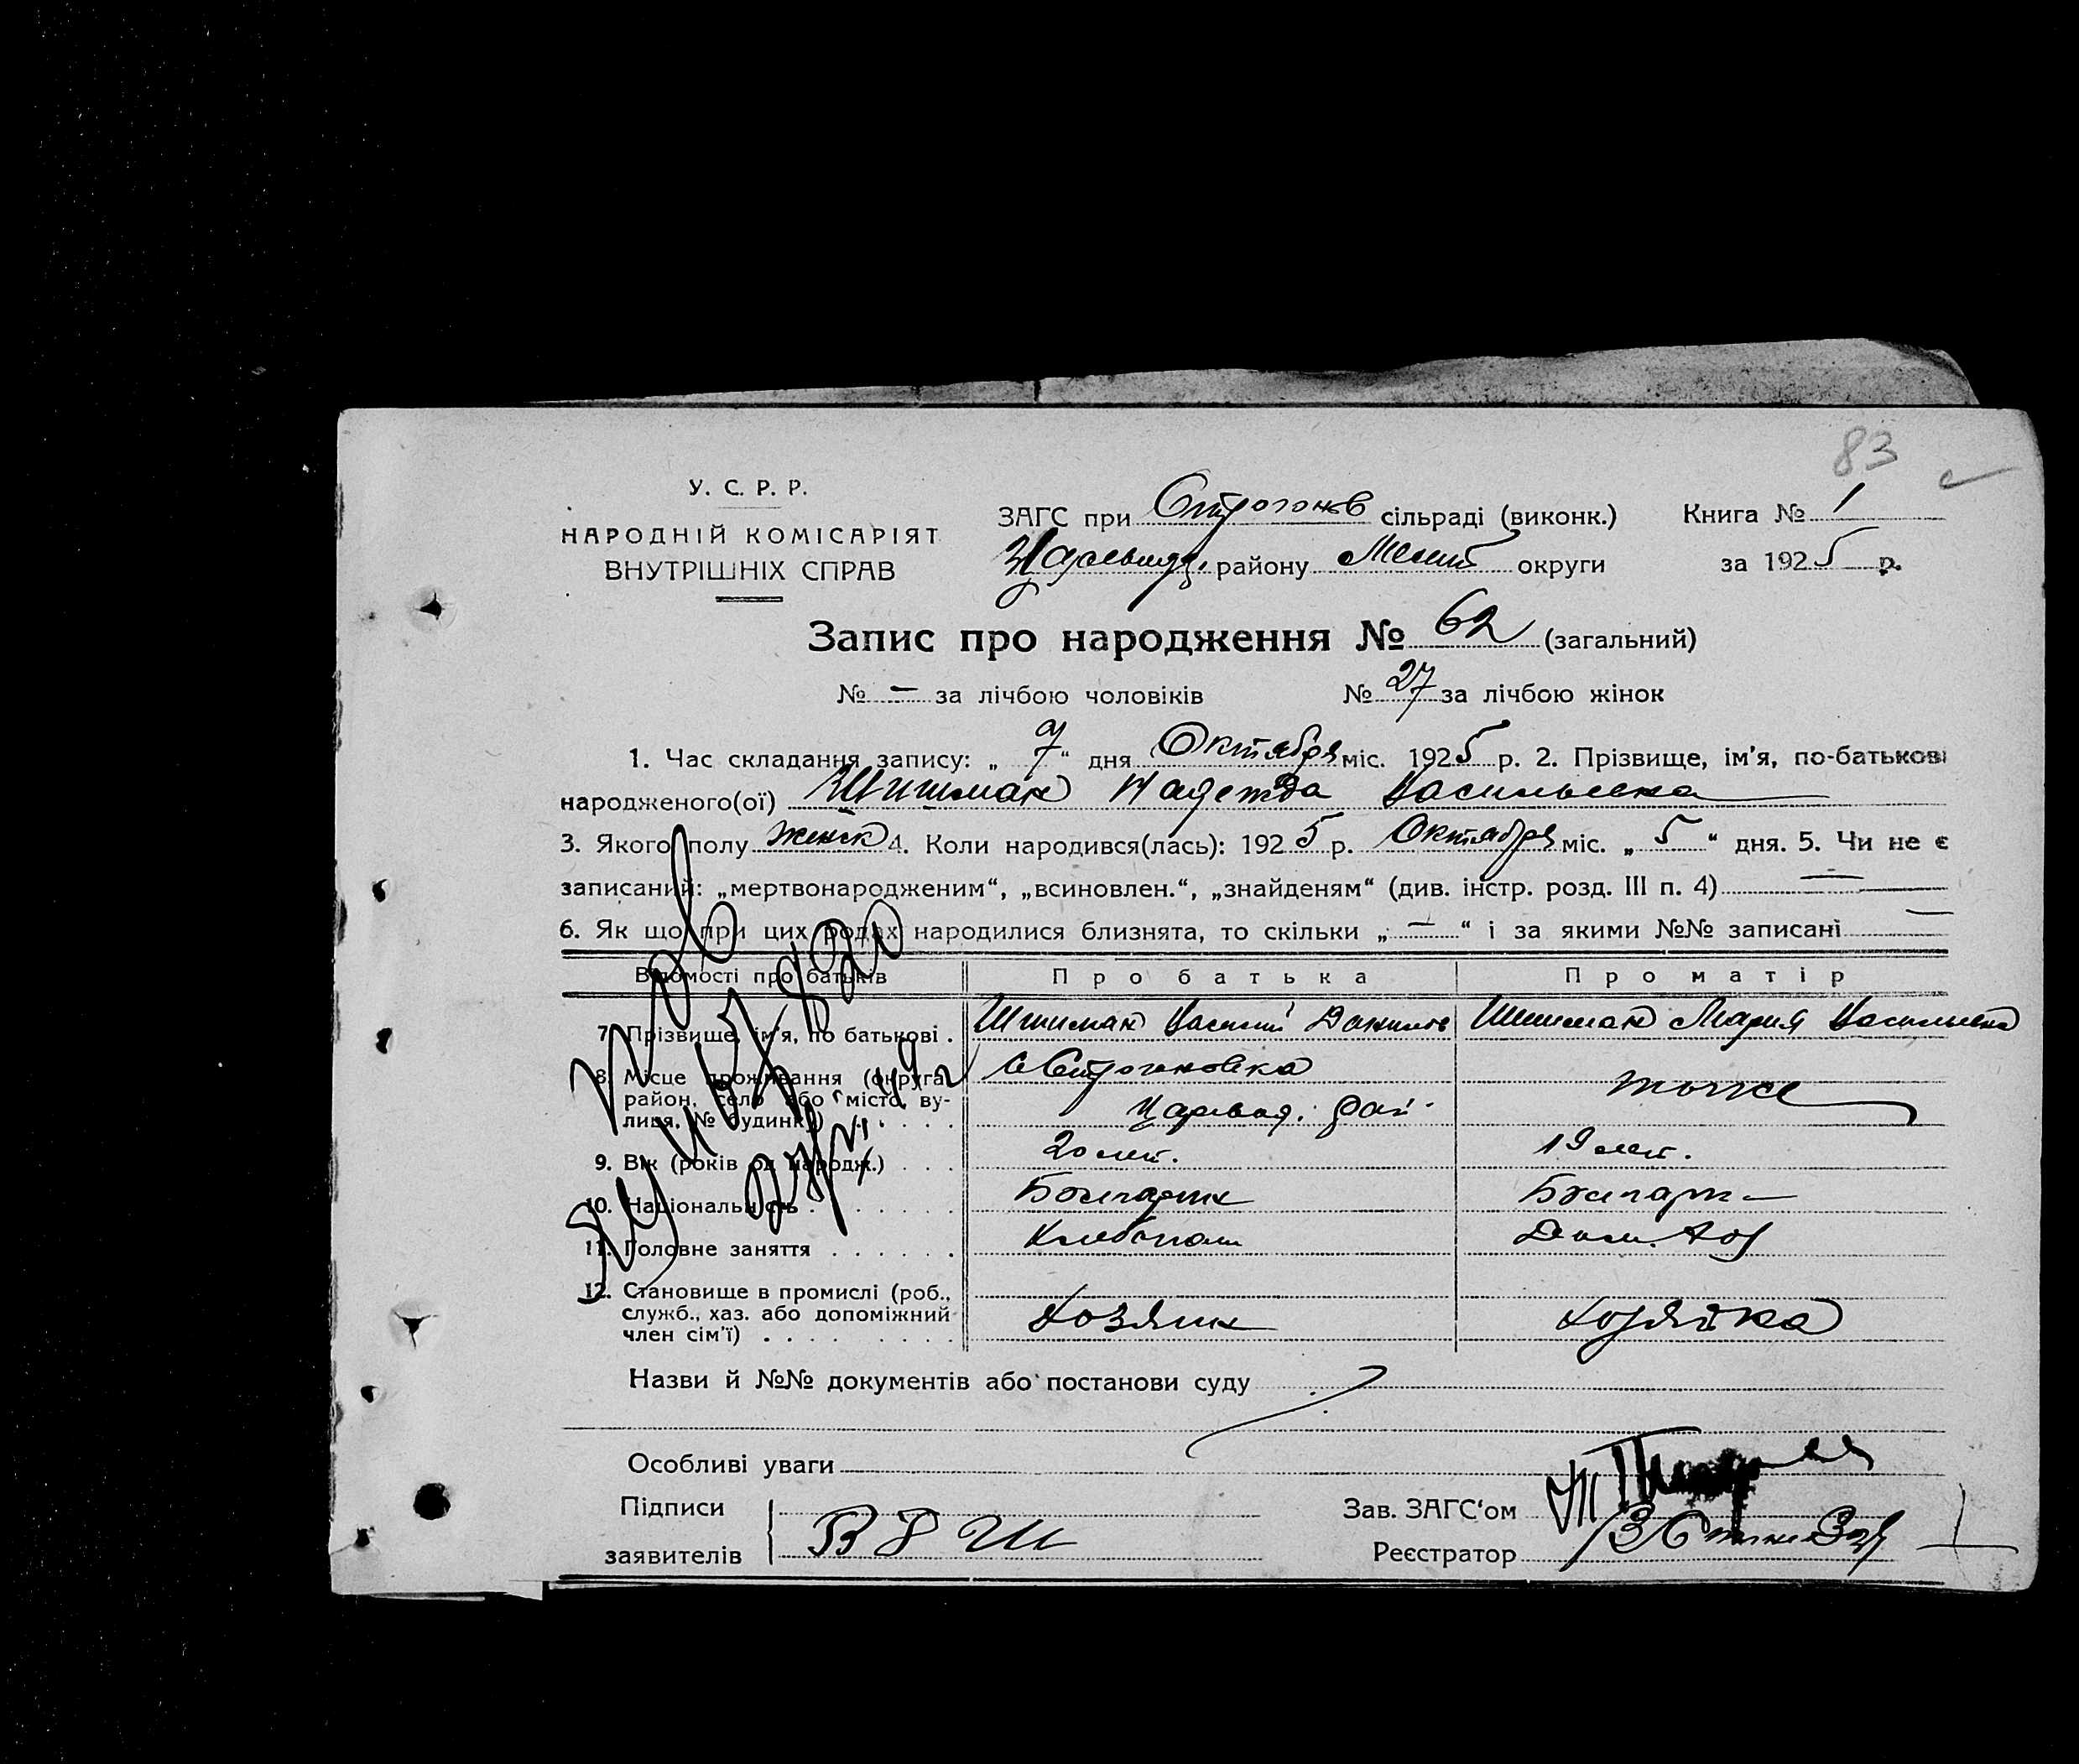 83
У. С. Р. Р.
НАРОДНІЙ КОМІСАРІЯТ
ВНУТРІШНІХ СПРАВ
ЗАГС при Строгонов сільраді (виконк.) Книга № 1
району Мелит округи за 1925 р.
Запис про народження № 62 (загальний)
№ — за лічбою чоловіків № 27 за лічбою жінок
1. Час складання запису: „ 7 “ дня Октября міс. 1925 р. 2. Прізвище, ім'я, по-батькові
народженого(ої) Шишман Надежда Васильевна
3. Якого полу женск 4. Коли народився(лась): 1925 р. Октября міс. „ 5 “ дня. 5. Чи не є
записаний: „мертвонародженим“, „всиновлен.“, „знайденям“ (див. інстр. розд. III п. 4) —
6. Як що при цих родах народилися близнята, то скільки „ — “ і за якими №№ записані —
Відомості про батьків Про батька Про матір
7. Прізвище, ім'я, по батькові . Шишман Василий Данилов Шишман Мария Васильевна
8. Місце проживання (округа, с Строгоновка
район, село або місто, ву- тоже
лиця, № будинку) . . . . . Царевод. рай.
9. Вік (років од народж.) . . . 20 лет. 19 лет.
10. Національність . . . . . . . Болгарин Болгарк
11. Головне заняття . . . . . . Хлебопаш Дом. хоз
12. Становище в промислі (роб.,
служб., хаз. або допоміжний Хозяин Хозяйка
член сім'ї) . . . . . . . . .
Назви й №№ документів або постанови суду
Особливі уваги
Підписи Зав. ЗАГС'ом
заявителів В Д Ш Реєстратор